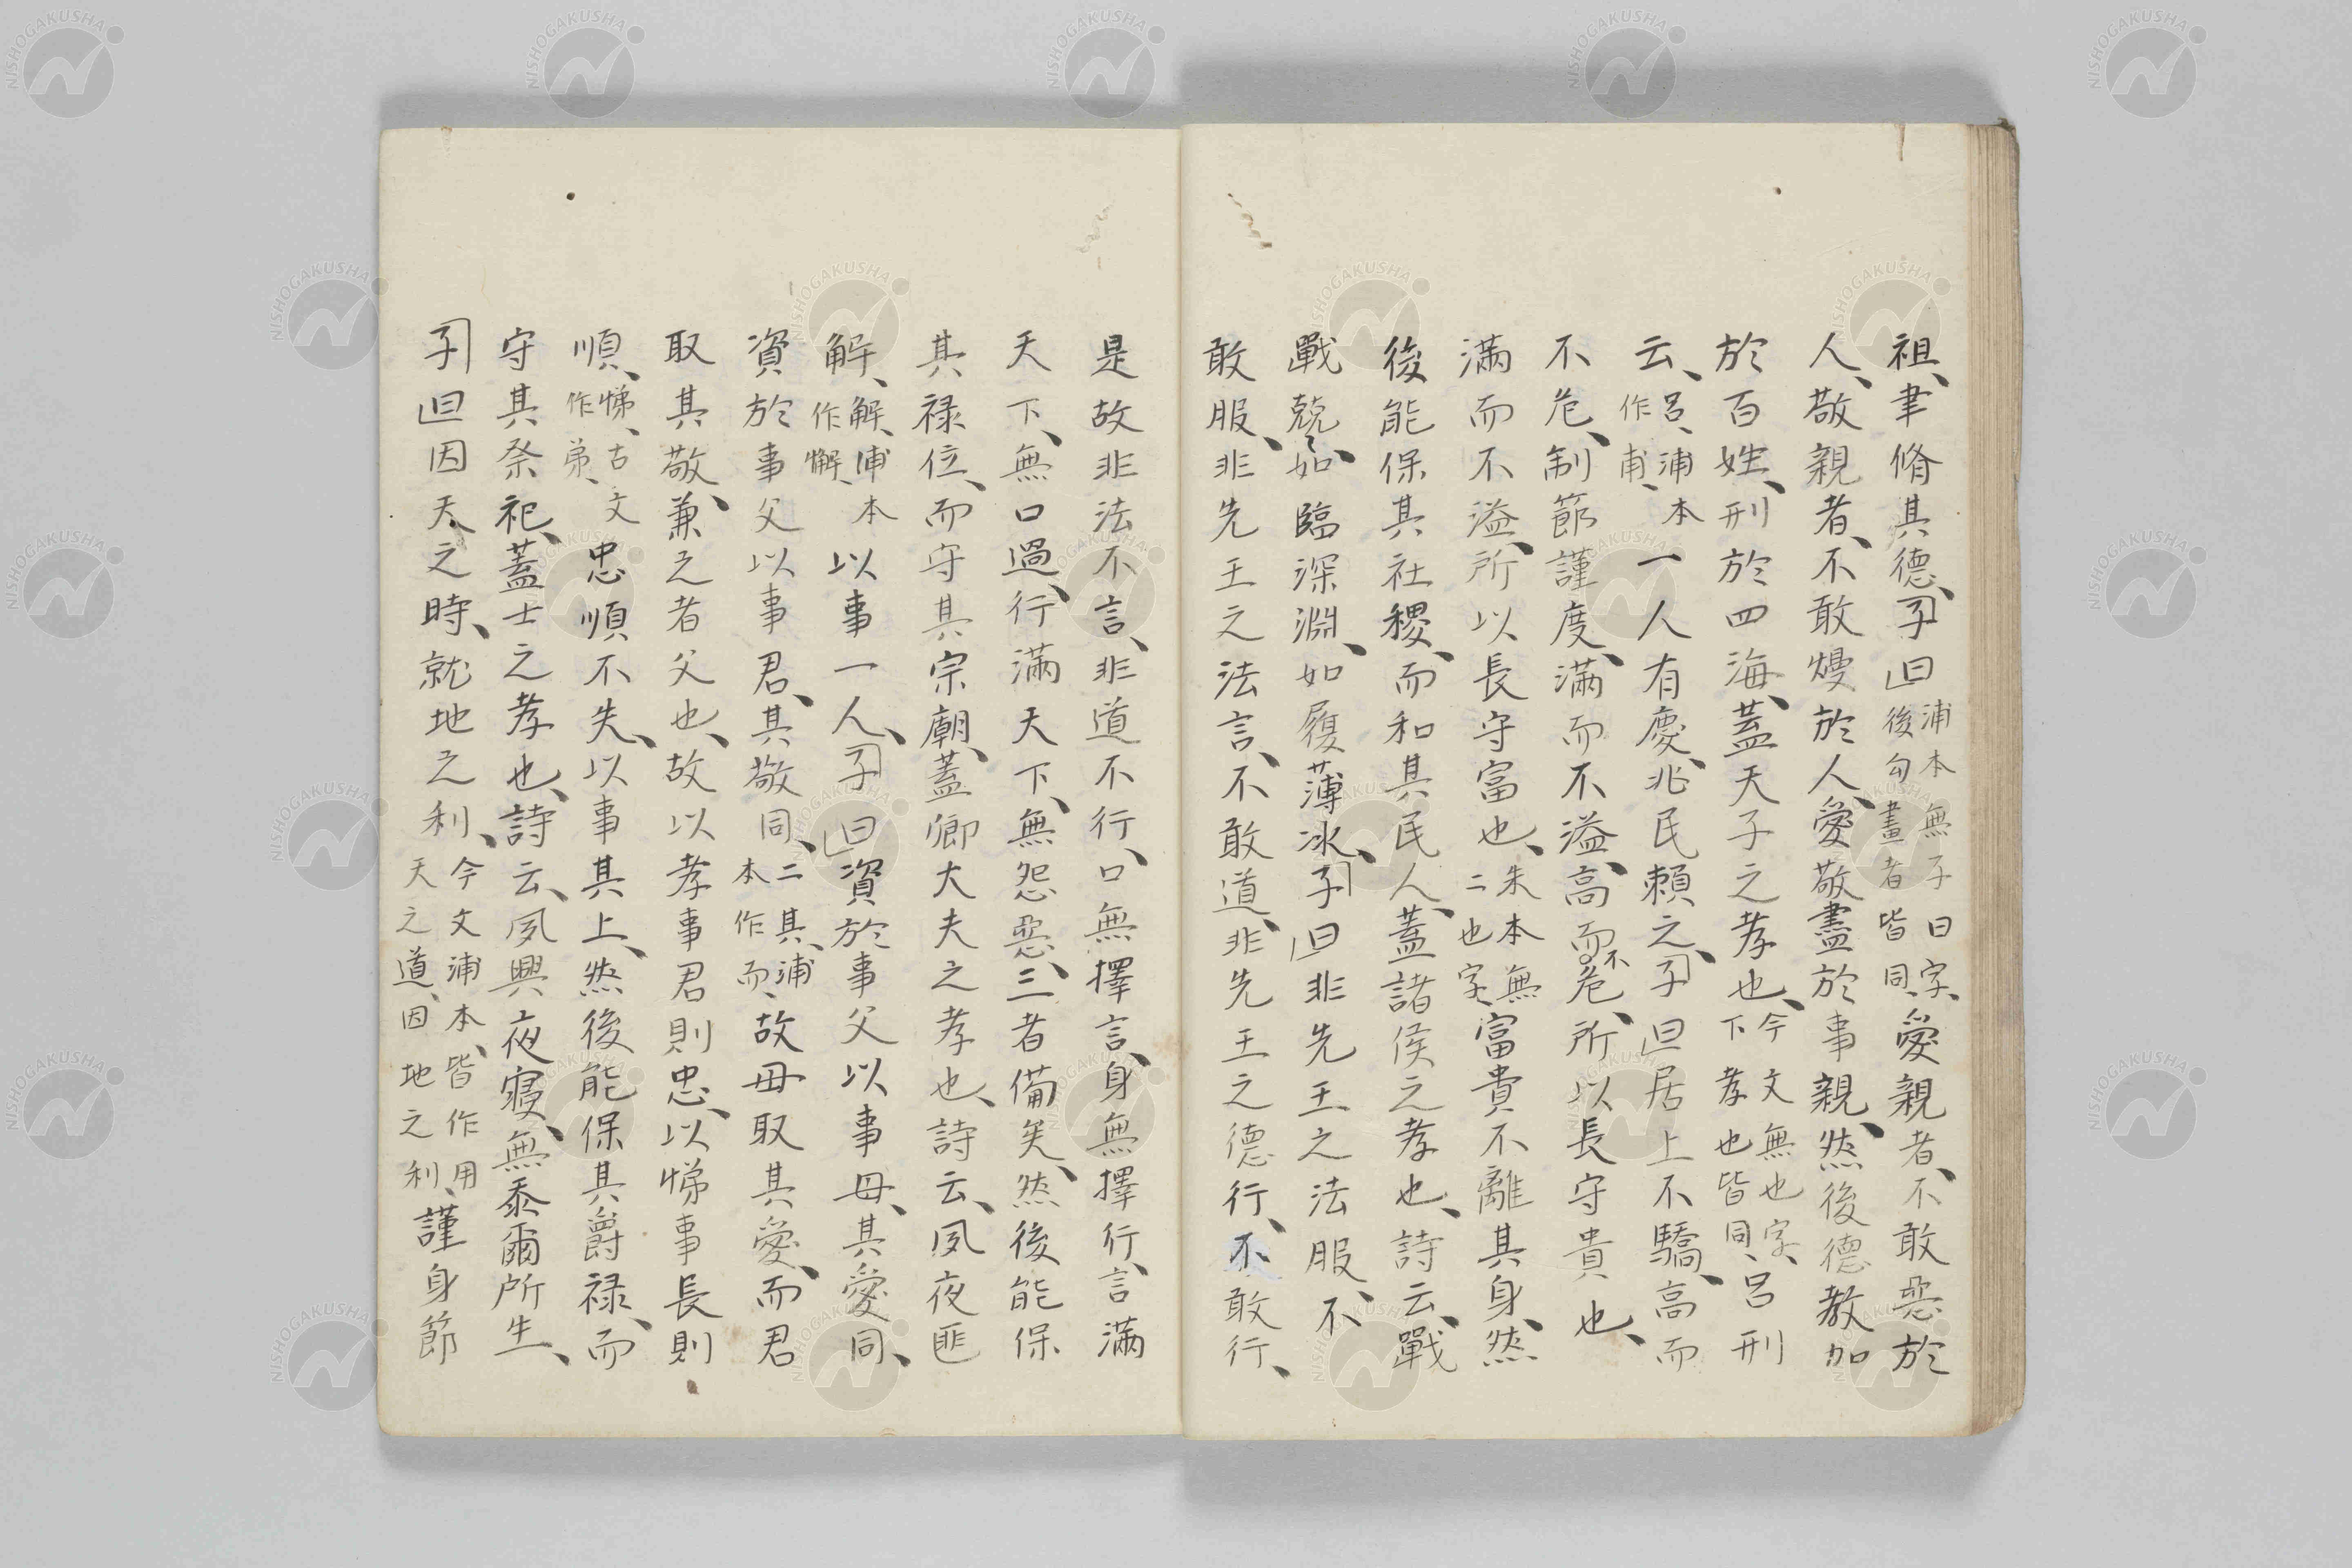 祖、聿脩其德、子曰浦本無子曰字、後勾畫者皆同、愛親者、不敢惡於
人、敬親者、不敢熳於人、愛敬盡於事親、然後德教加
於百姓、刑於四海、蓋天子之孝也、今文無也字、下孝也皆同、呂刑
云、呂、浦本作甫、一人有慶、兆民賴之、子曰居上不驕、高而
不危、制節謹度、滿而不溢、高而不危、所以長守貴也、
滿而不溢、所以長守富也、朱本無二也字、富貴不離其身、然
後能保其社稷、而和其民人、蓋諸侯之孝也、詩云、戰
戰兢〻如臨深淵、如履薄冰、子曰非先王之法服、不
敢服、非先王之法言、不敢道、非先王之德行、不敢行、
是故非法不言、非道不行、口無擇言、身無擇行、言滿
天下、無口過、行滿天下、無怨惡、三者備矣、然後能保
其祿位、而守其宗廟、蓋卿大夫之孝也、詩云、夙夜匪
解、解、浦本作懈、以事一人、子曰資於事父以事母、其愛同、
資於事父以事君、其敬同、二其、浦本作而、故母取其愛、而君
取其敬、兼之者父也、故以孝事君則忠、以悌事長則
順、悌、古文作弟、忠順不失、以事其上、然後能保其爵祿、而
守其祭祀、蓋士之孝也、詩云、夙興夜寢、無忝爾所生、
子曰因天之時、就地之利、今文浦本、皆作用天之道、因地之利、謹身節
NISHOGAKUSHA